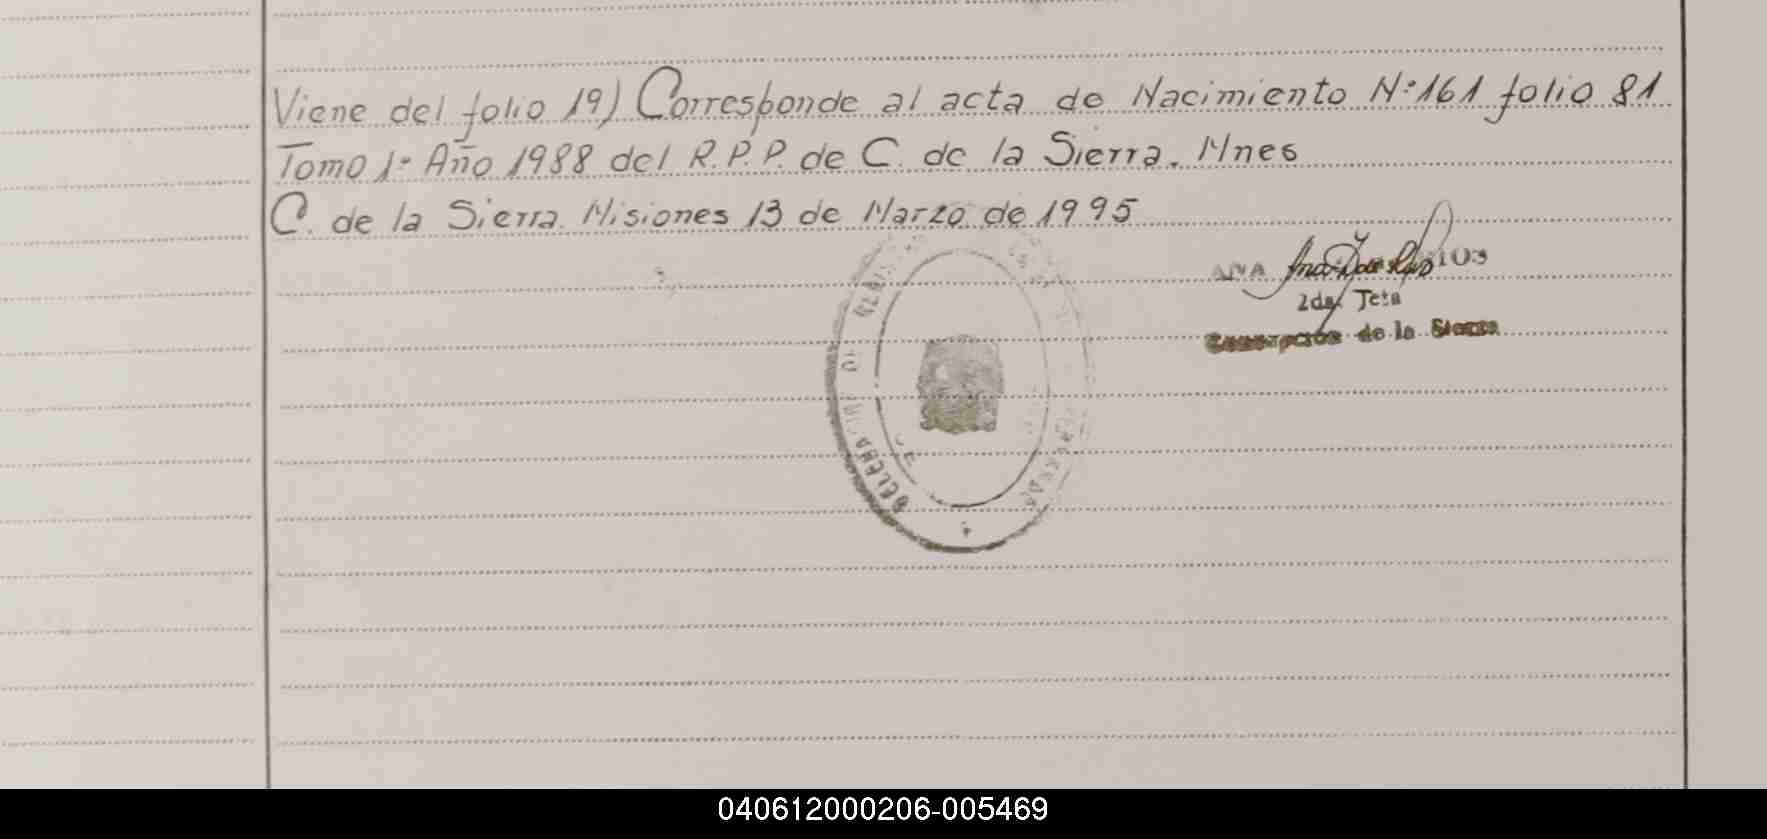 Viene del folio 19) Corresponde al acta de Nacimiento Nº161 folio 81
Tomo 1º Año 1988 del R.P.P. de C. de la Sierra. Mnes
C. de la Sierra. Misiones 13 de Marzo de 1995
ANA
2da. Jefa
Concepción de la Sierra
040612000206-005469